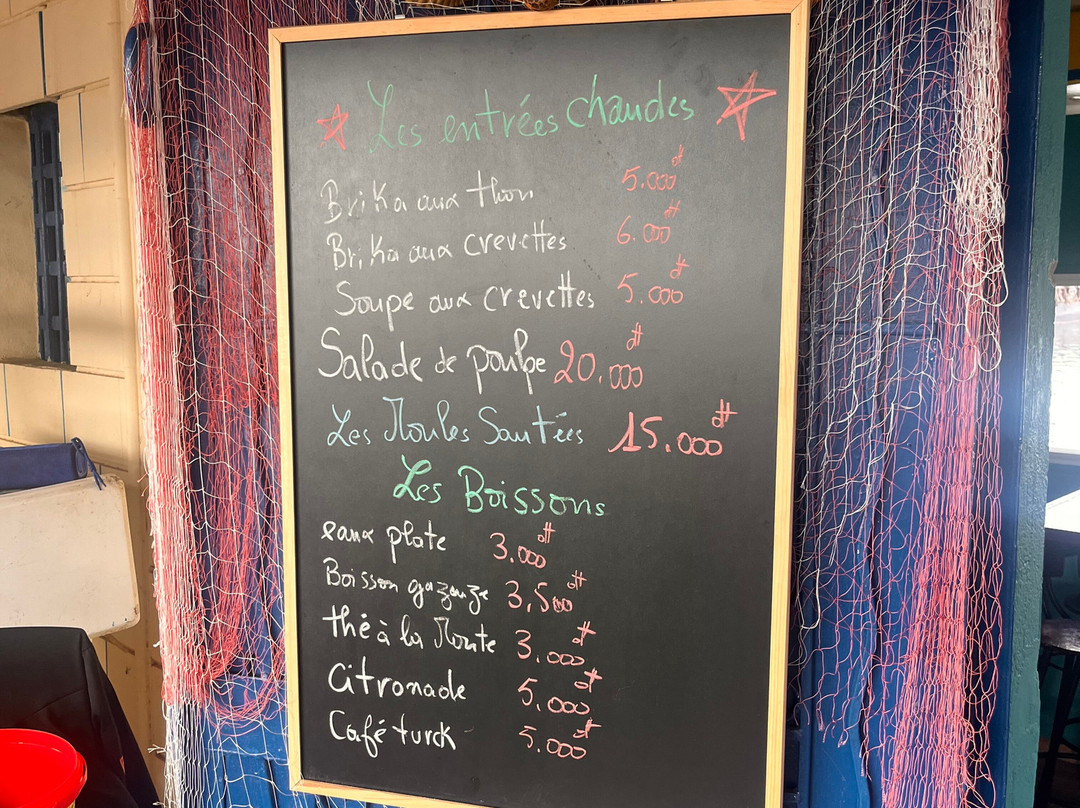 Les entrées chaudes
Brika aux thon 5.000 dt
Brika aux crevettes 6.000 dt
Soupe aux crevettes 5.000 dt
Salade de poulpe 20.000 dt
Les Moules Sautées 15.000 dt
Les Boissons
eaux plate 3.000 dt
Boisson gazeuze 3,500 dt
thé à la Monte 3.000 dt
Citronade 5.000 dt
Café turck 5.000 dt